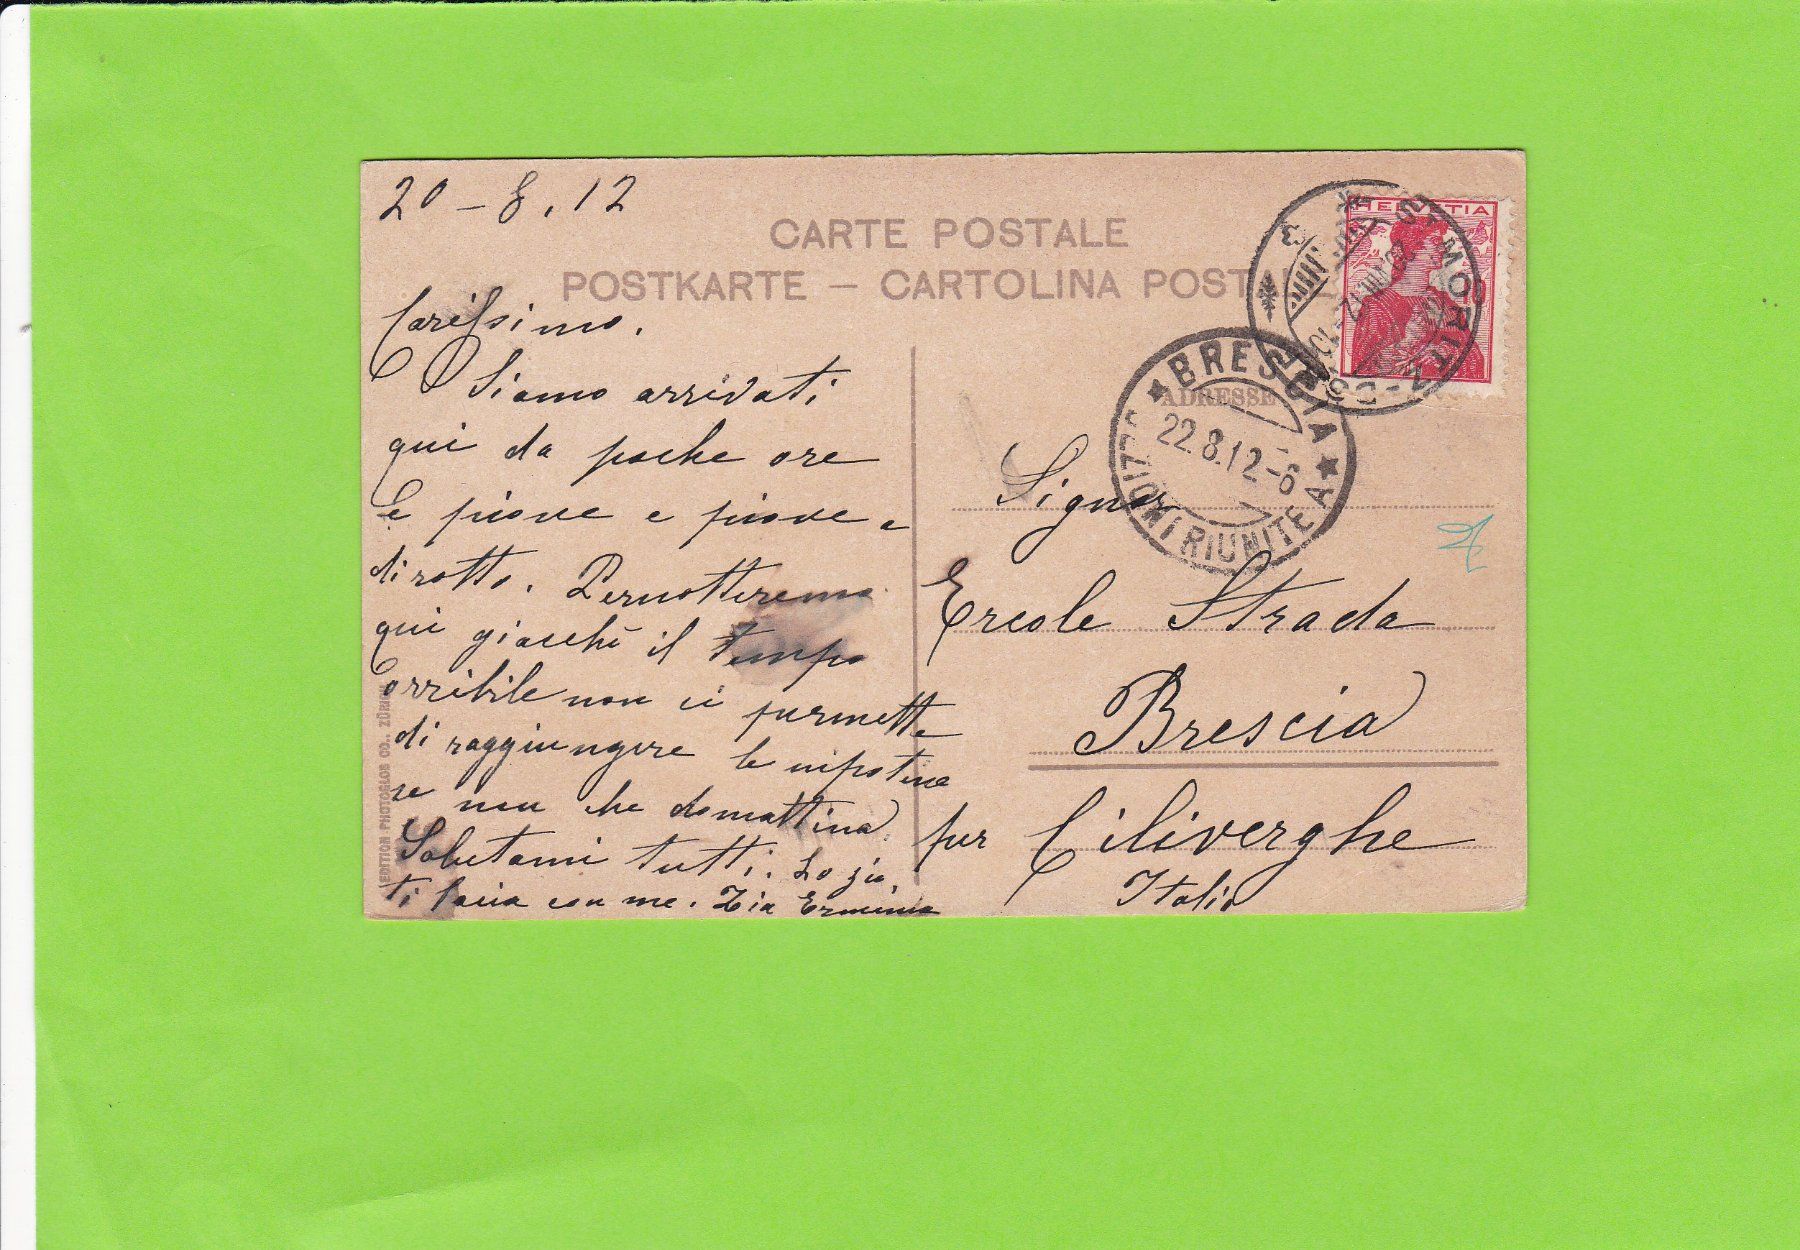 20-8.12
CARTE POSTALE
POSTKARTE – CARTOLINA POSTALE
Carissimo.
Siamo arrivati
qui da poche ore
e piove e piove a
dirotto. Pernotteremo
qui giacchè il tempo
orribile non ci permette
di raggiungere le nipotine
se non che domattina
Salutami tutti. Lo zio
ti bacia con me. Zia Erminia
EDITION PHOTOGLOB CO., ZÜRICH
HELVETIA
ST. MORITZ
BRESCIA
22.8.12-6
RIUNITE A
ADRESSE
Signor
Ercole Strada
Brescia
per Ciliverghe
Italia